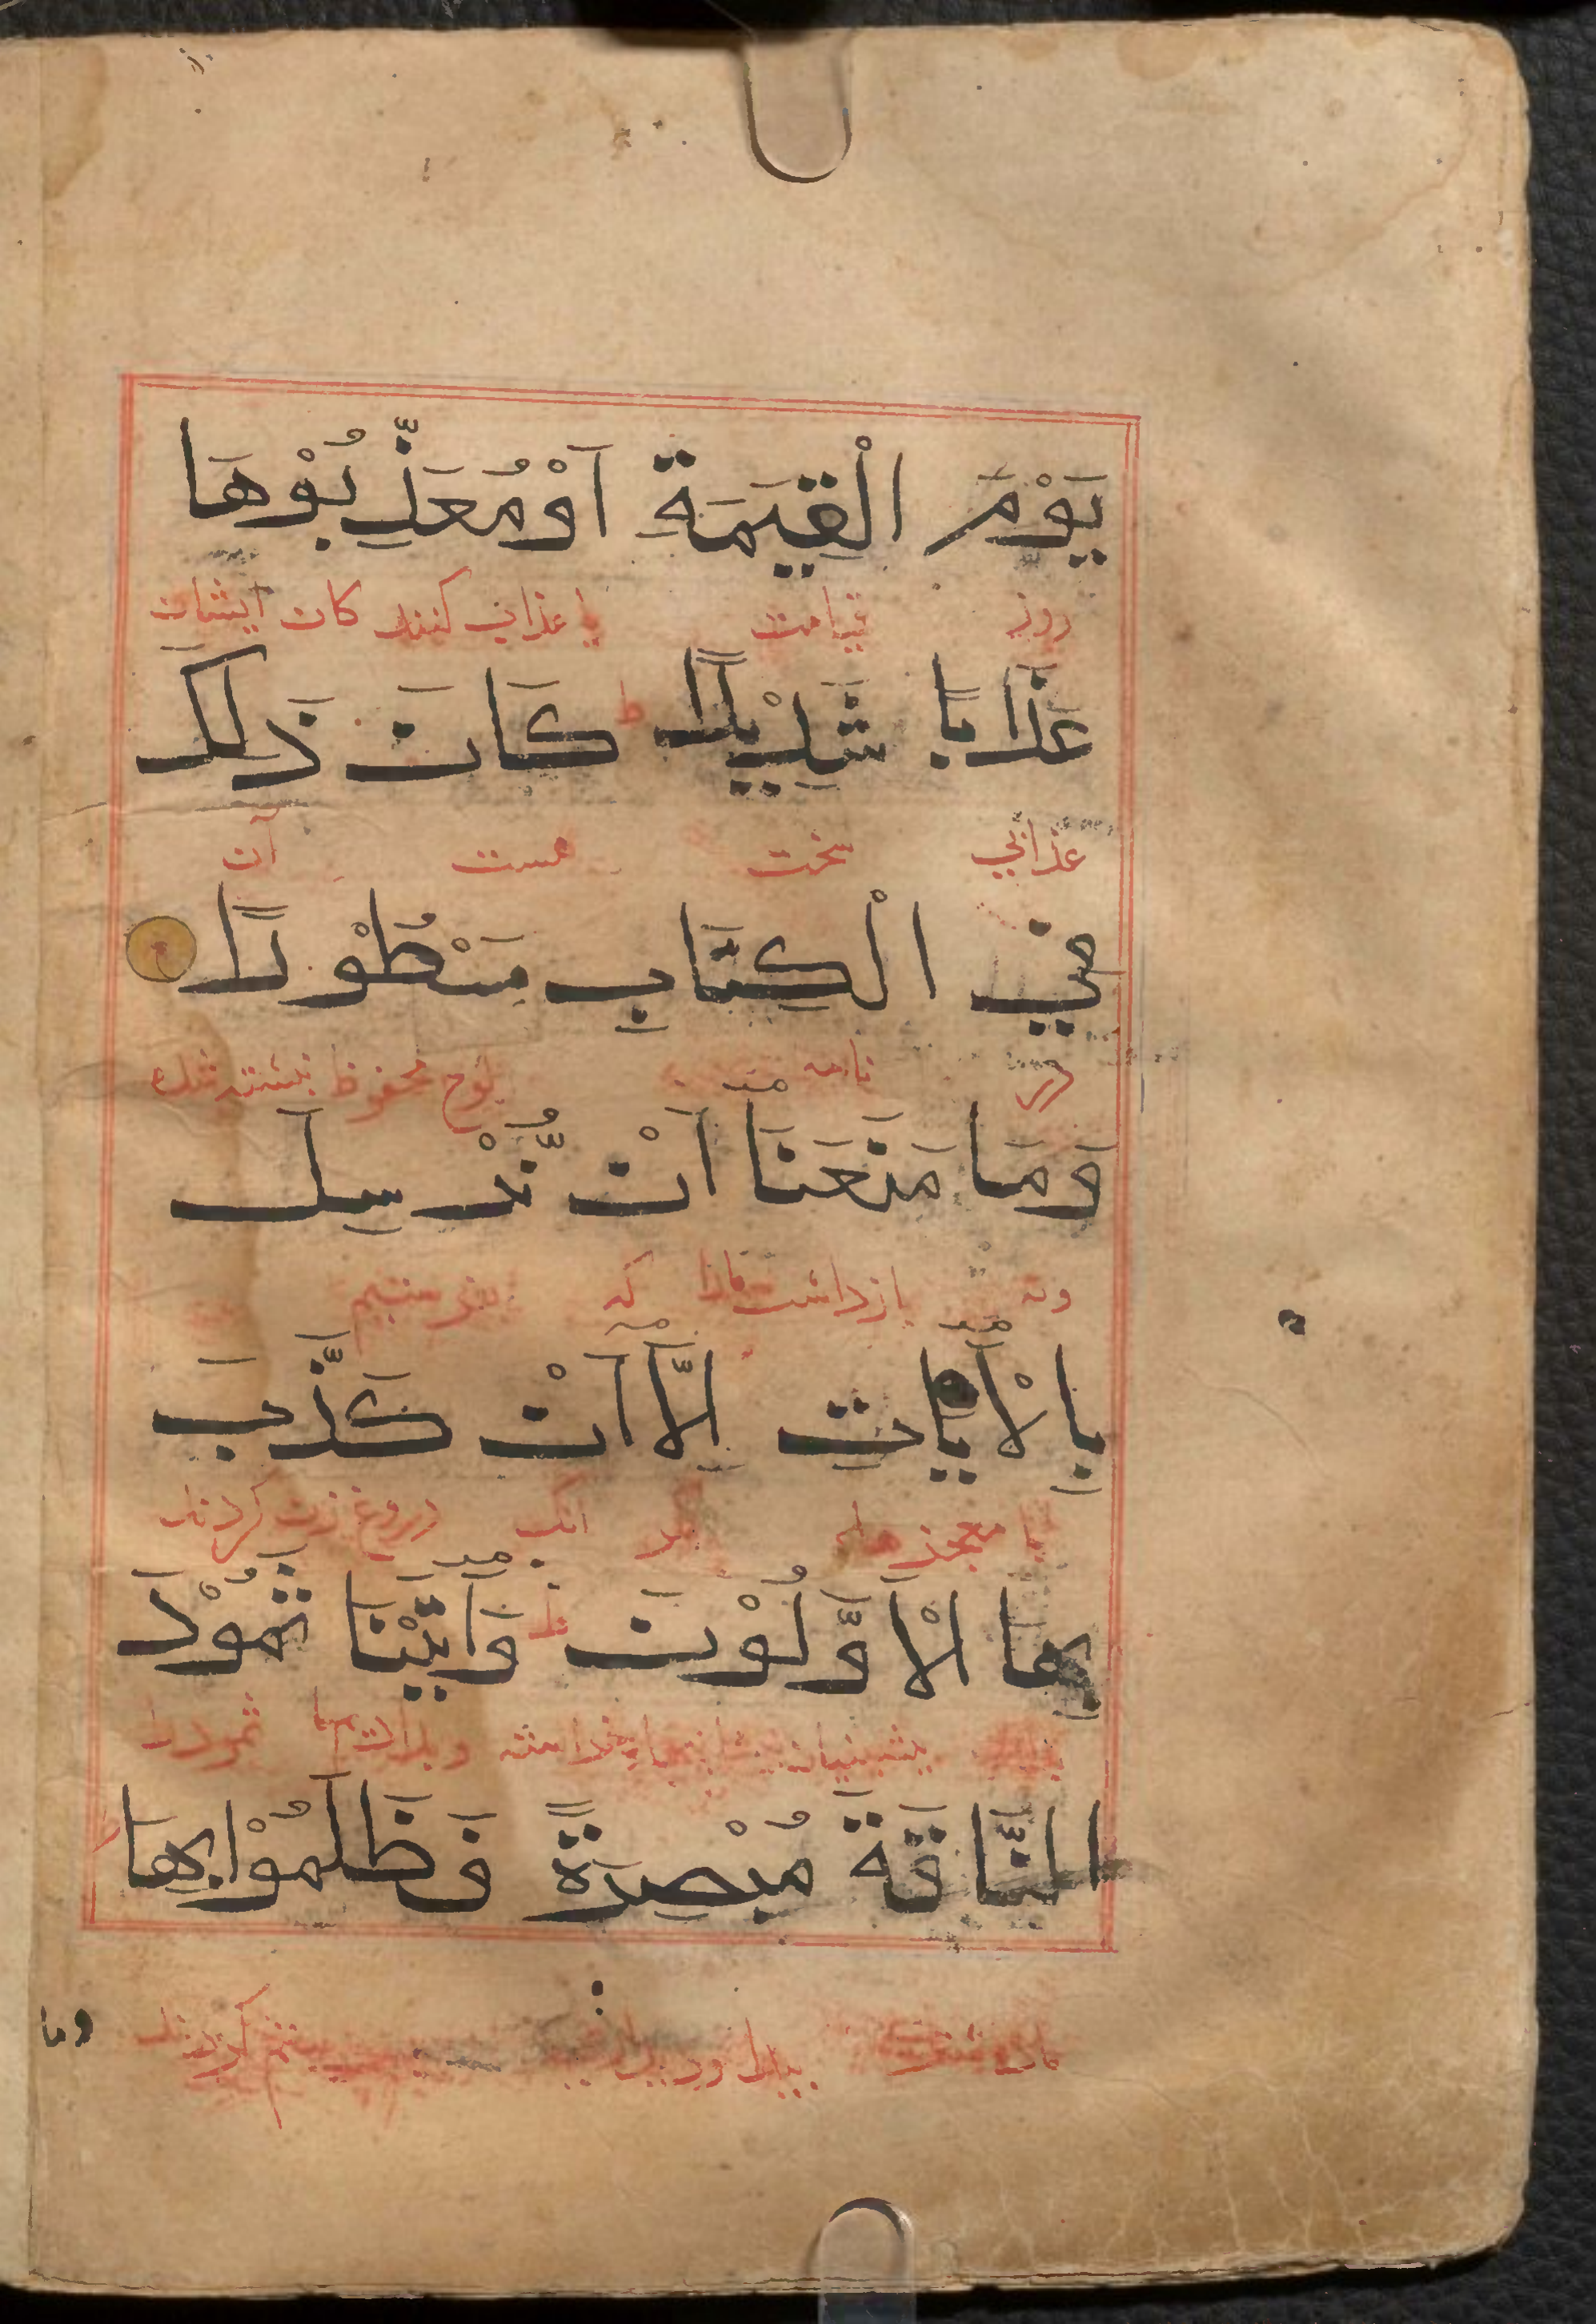 يَوْمَ الْقِيٰمَةِ اَوْ مُعَذِّبُوْهَا
روز قیامت یا عذاب کنندکان ایشان
عَذَابًا شَدِيْدًا ط كَانَ ذٰلِكَ
عذابی سخت هست آن
فِي الْكِتَابِ مَسْطُوْرًا
در نامه لوح محفوظ نبشته شده
وَمَا مَنَعَنَا اَنْ نُّرْسِلَ
ونه بازداشت مارا که بفرستیم
بِالْاٰيَاتِ اِلَّا اَنْ كَذَّبَ
با معجزها مکر انک دروغ زن کردند
بِهَا الْاَوَّلُوْنَ ط وَاٰتَيْنَا ثَمُوْدَ
پیشینیان ثمودرا
النَّاقَةَ مُبْصِرَةً فَظَلَمُوْا بِهَا
ستم کردند
وما